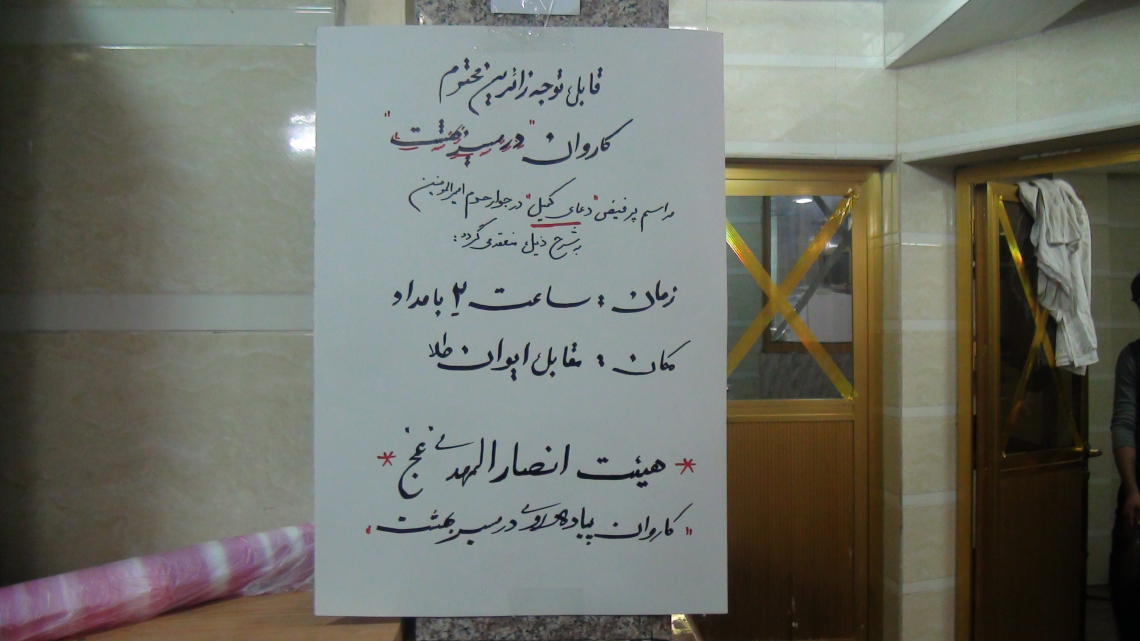 قابل توجه زائرین محترم
کاروان "در مسیر بهشت"
مراسم پر فیض "دعای کمیل" در جوار حرم امیرالمومنین
به شرح ذیل منعقد می گردد:
زمان : ساعت ۲ بامداد
مکان : مقابل ایوان طلا
* هیئت انصار المهدی عج *
"کاروان پیاده روی در مسیر بهشت"